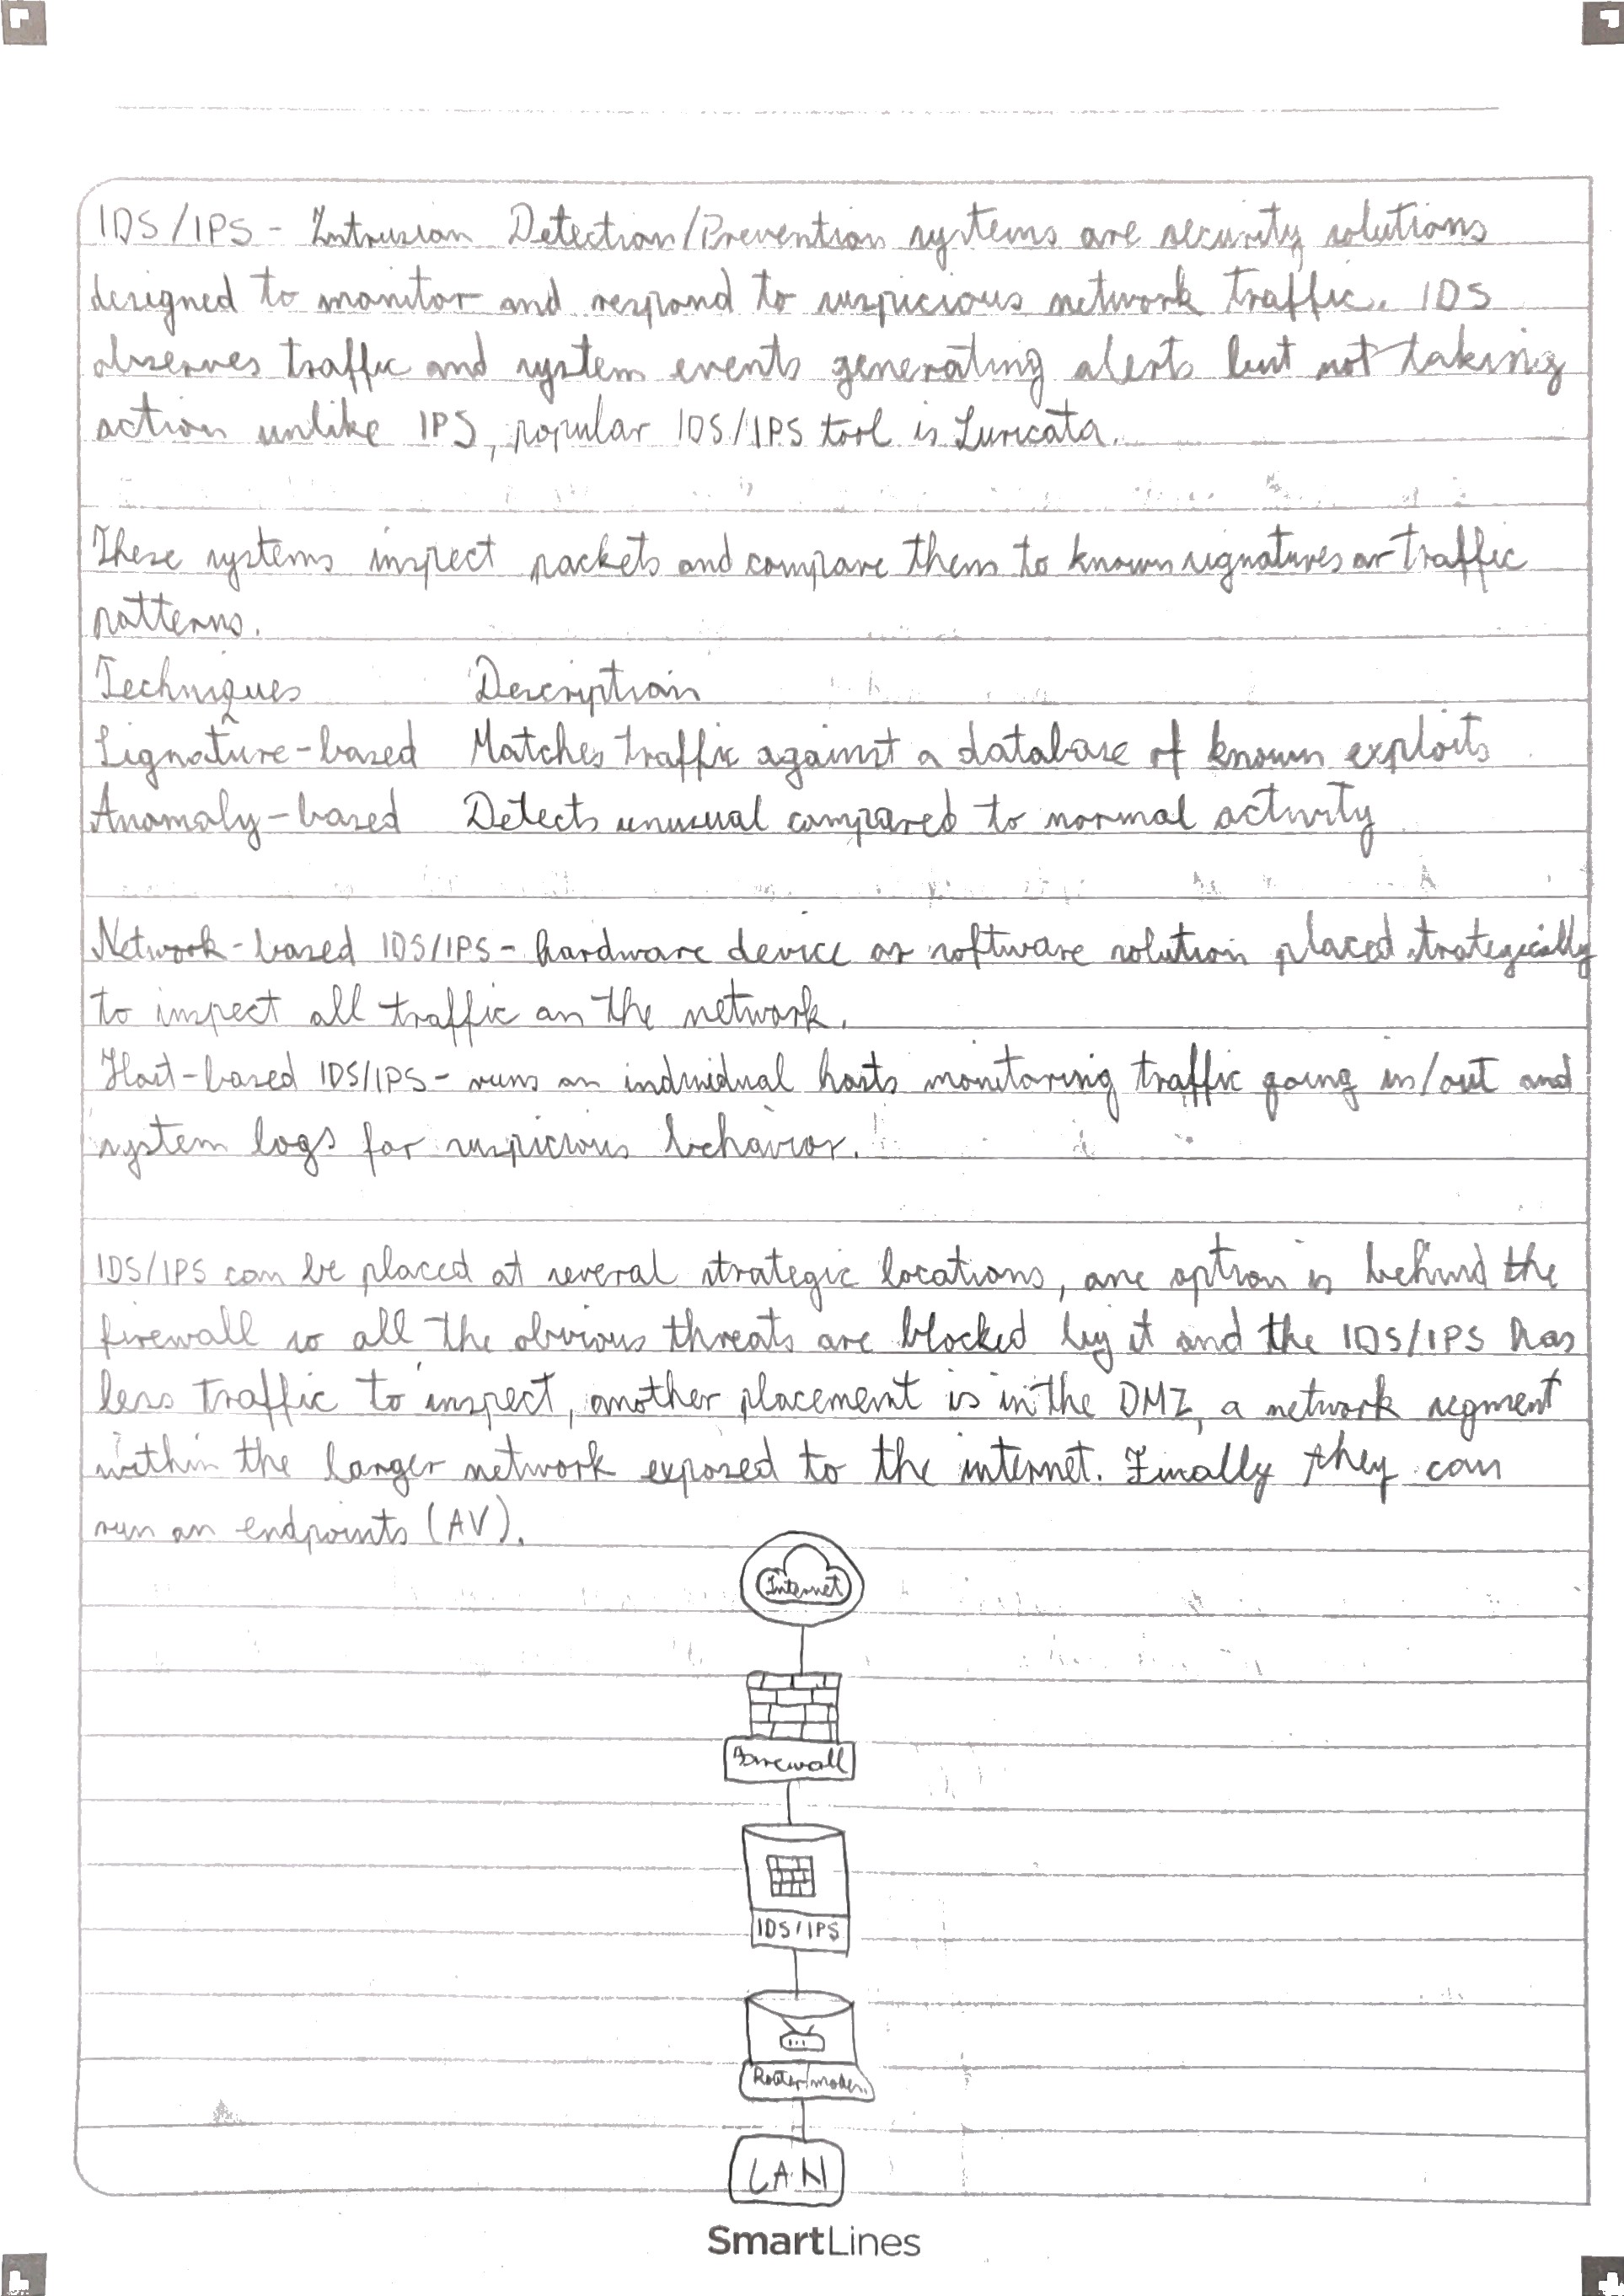 IDS/IPS - Intrusion Detection/Prevention systems are security solutions
designed to monitor and respond to suspicious network traffic. IDS
observes traffic and system events generating alerts but not taking
action unlike IPS, popular IDS/IPS tool is Suricata.
These systems inspect packets and compare them to known signatures or traffic
patterns.
Techniques Description
Signature-based Matches traffic against a database of known exploits
Anomaly-based Detects unusual compared to normal activity
Network-based IDS/IPS - hardware device or software solution placed strategically
to inspect all traffic on the network.
Host-based IDS/IPS - runs on individual hosts monitoring traffic going in/out and
system logs for suspicious behavior.
IDS/IPS can be placed at several strategic locations, one option is behind the
firewall so all the obvious threats are blocked by it and the IDS/IPS has
less traffic to inspect, another placement is in the DMZ, a network segment
within the larger network exposed to the internet. Finally they can
run on endpoints (AV).
Internet
Firewall
IDS/IPS
Router/modem
LAN
SmartLines